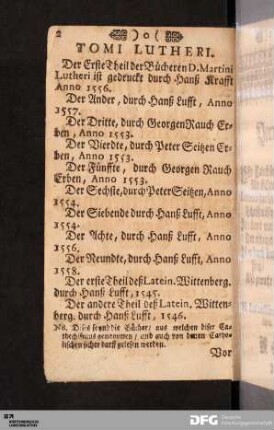 2 ) o (
TOMI LUTHERI.
Der Erste Theil der Bücheren D. Martini
Lutheri ist gedruckt durch Hanß Krafft
Anno 1556.
Der Ander, durch Hanß Lufft, Anno
1557.
Der Dritte, durch Georgen Rauch Er-
ben, Anno 1553.
Der Vierdte, durch Peter Seitzen Er-
ben, Anno 1553.
Der Fünffte, durch Georgen Rauch
Erben, Anno 1553.
Der Sechste, durch Peter Seitzen, Anno
1554.
Der Siebende durch Hanß Lufft, Anno
1554.
Der Achte, durch Hanß Lufft, Anno
1556.
Der Neundte, durch Hanß Lufft, Anno
1558.
Der erste Theil deß Latein. Wittenberg.
durch Hanß Lufft, 1545.
Der andere Theil deß Latein. Witten-
berg. durch Hanß Lufft, 1546.
NB. Dises seynd die Bücher, aus welchen diser Ca-
thechismus genommen / und auch von denen Catho-
lischen sicher darff gelesen werden.
Vor
DFG